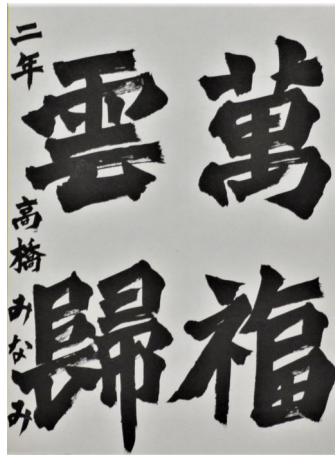 萬福
雲歸
二年 高橋みなみ